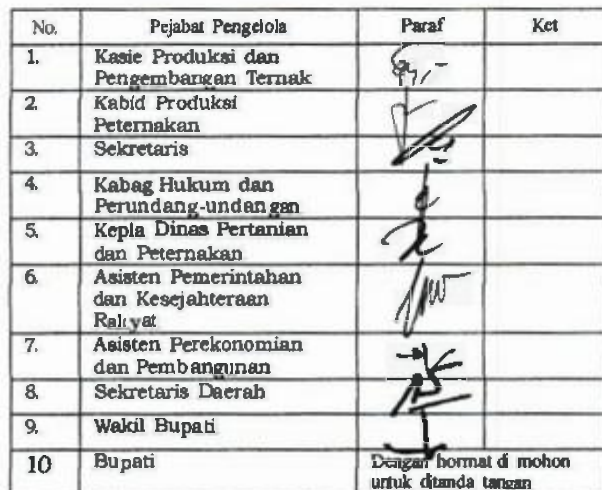 No. Pejabat Pengelola Paraf Ket
1. Kasie Produksi dan
Pengembangan Ternak
2. Kabid Produksi
Peternakan
3. Sekretaris
4. Kabag Hukum dan
Perundang-undangan
5. Kepla Dinas Pertanian
dan Peternakan
6. Asisten Pemerintahan
dan Kesejahteraan
Rakyat
7. Asisten Perekonomian
dan Pembangunan
8. Sekretaris Daerah
9. Wakil Bupati
10 Bupati Dengan hormat di mohon
untuk ditanda tangan